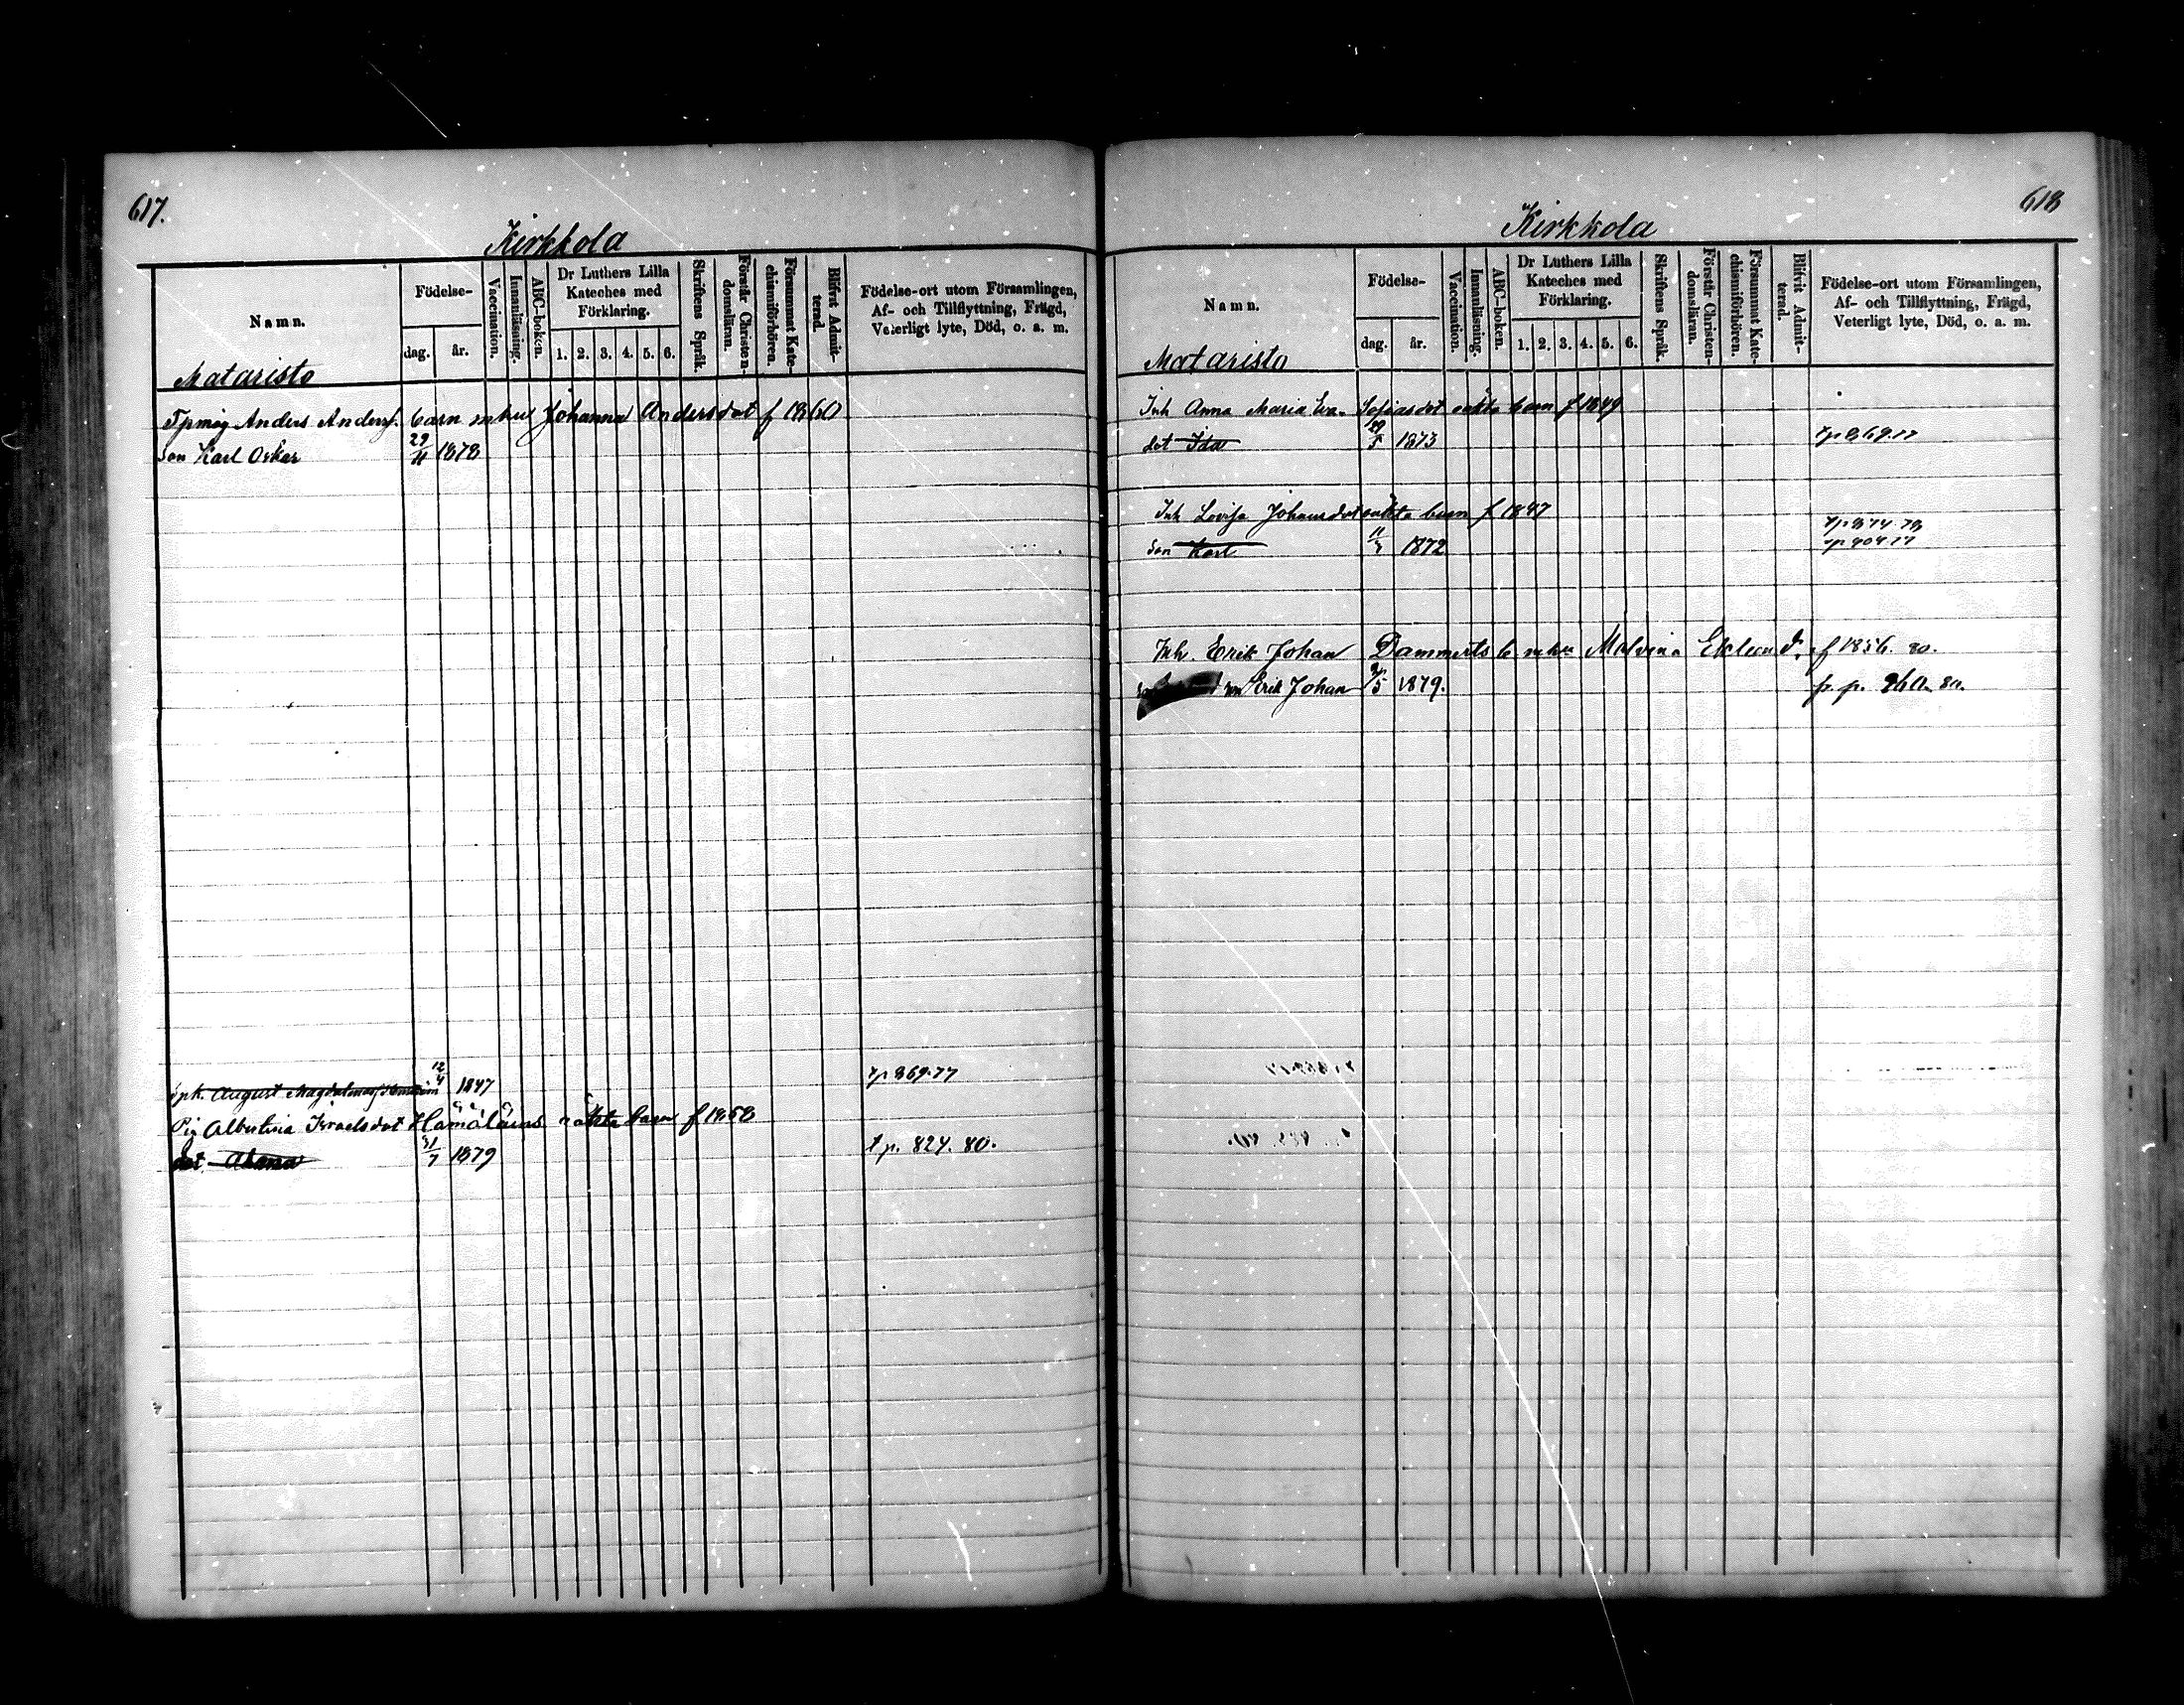 617.
Kirkkola
Namn.
Födelse-
dag.
år.
Vaccination.
Innanläsning.
ABC-boken.
Dr Luthers Lilla
Kateches med
Förklaring.
1. 2. 3. 4. 5. 6.
Skriftens Språk.
Förstår Christen-
domsläran.
Försummat Kate-
chismiförhören.
Blifvit Admit-
terad.
Födelse-ort utom Församlingen,
Af- och Tillflyttning, Frägd,
Veterligt lyte, Död, o. a. m.
Mataristo
Anders Andersf. barn m hu Johanna Andersdot f 1860
Son Karl Oskar 29/11 1878
August 12/4 1847 tp 869.77
Pig Albertina Israelsdot Hämäläins oäkta barn f 1858
dot. 31/7 1879 t p. 824. 80.
618
Kirkkola
Namn.
Födelse-
dag.
år.
Vaccination.
Innanläsning.
ABC-boken.
Dr Luthers Lilla
Kateches med
Förklaring.
1. 2. 3. 4. 5. 6.
Skriftens Språk.
Förstår Christen-
domsläran.
Försummat Kate-
chismiförhören.
Blifvit Admit-
terad.
Födelse-ort utom Församlingen,
Af- och Tillflyttning, Frägd,
Veterligt lyte, Död, o. a. m.
Mataristo
Inh Anna Maria Eva Sofiasdot oäkta barn f 1849
dot Ida 1873 tp 869.77
Inh Lovisa Johansdot oäkta barn f 1847
tp 874.78
Son Karl 1872 tp 904.77
Inh. Erik Johan Dammerts b m hu Malvina Eklund. f 1856. 80.
son Erik Johan 1879. fr p. 960. 80.